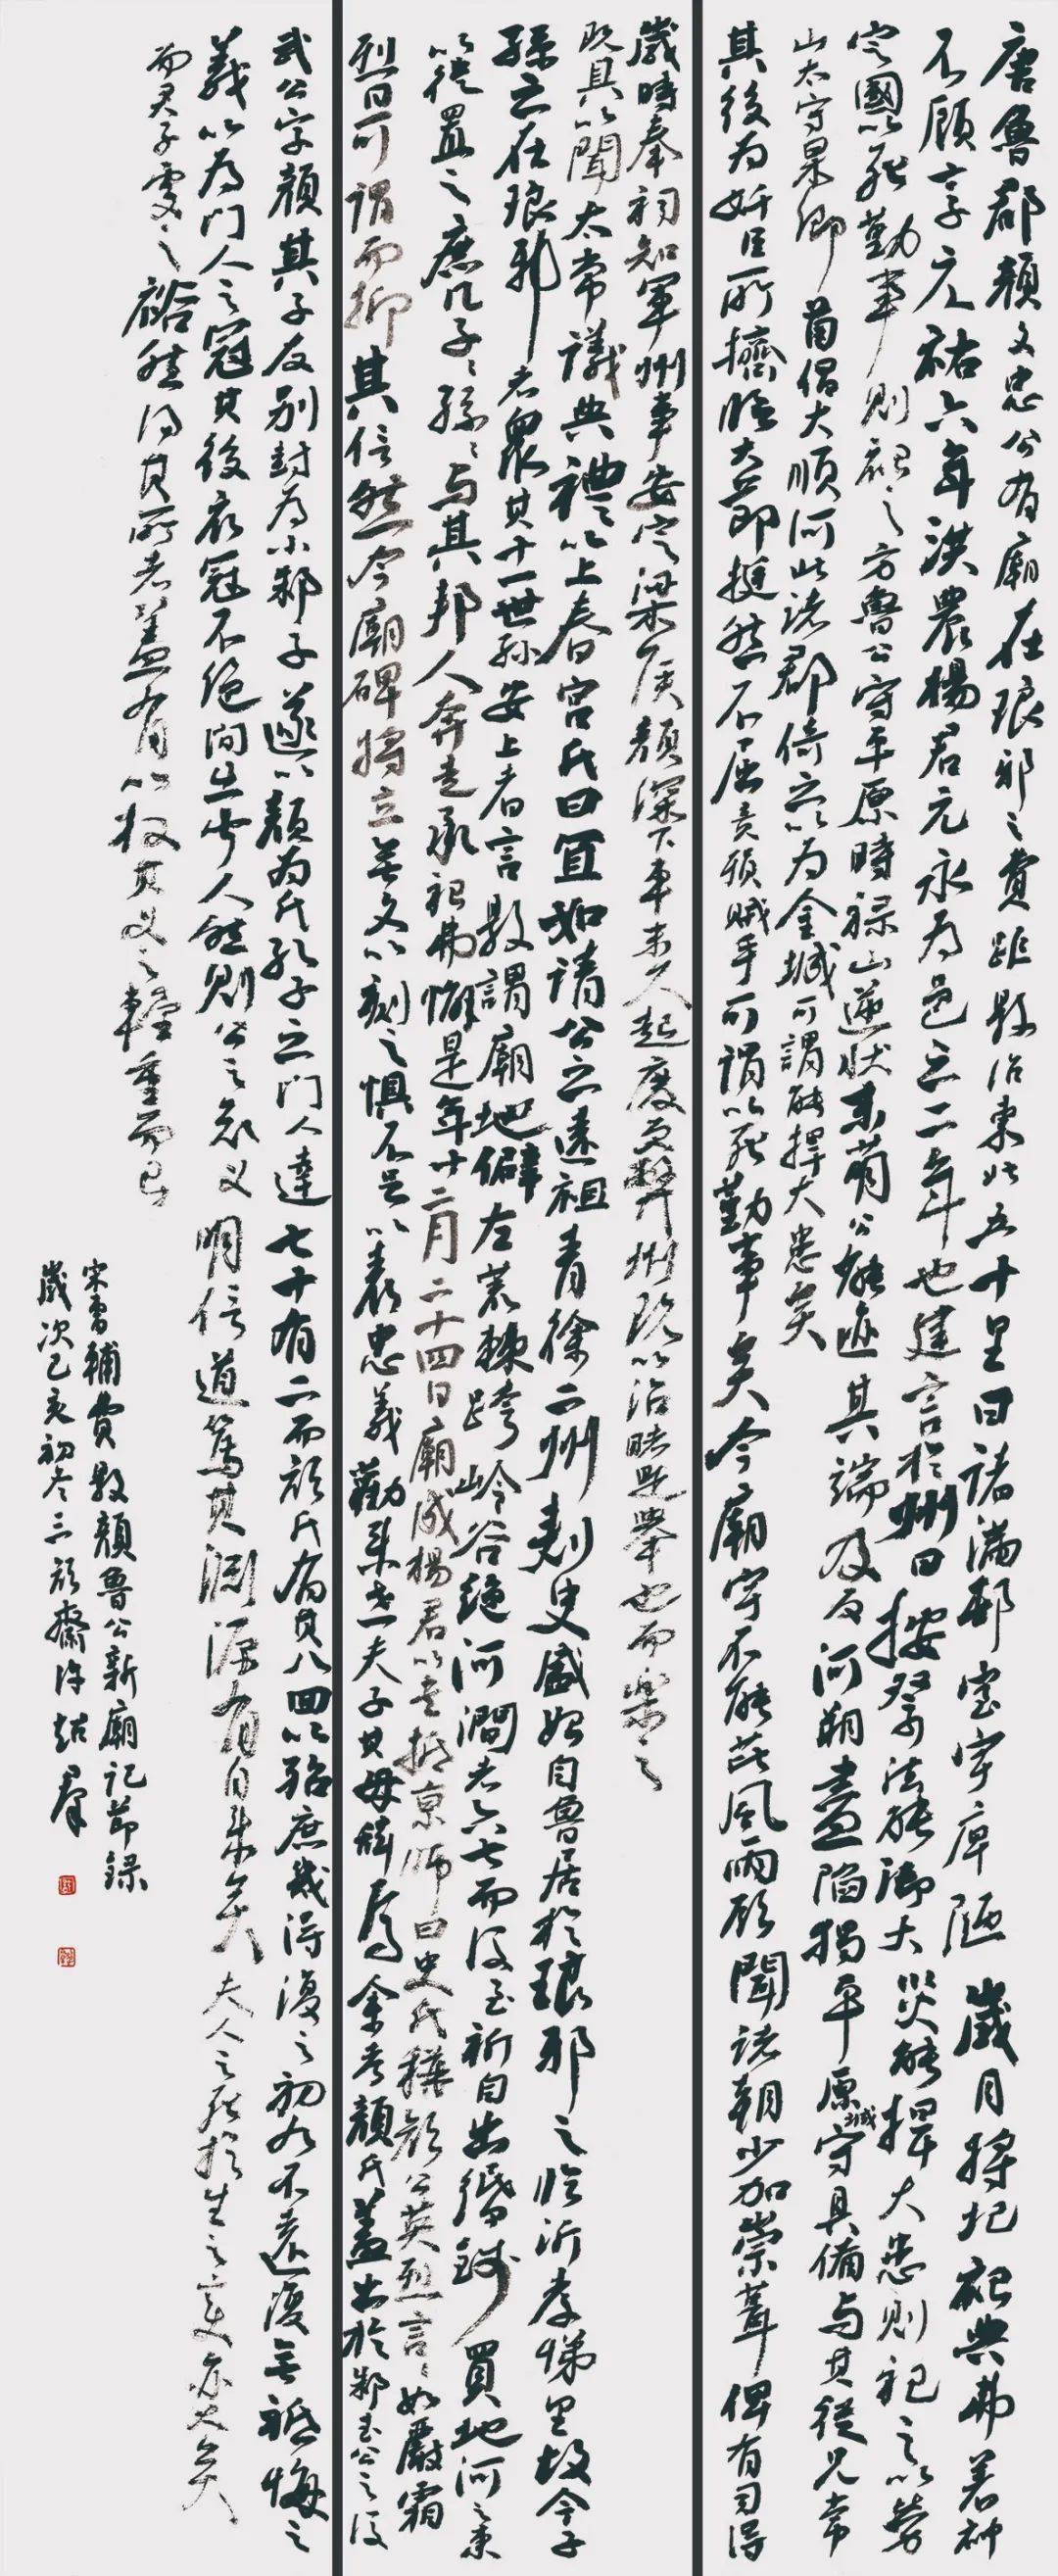 唐魯郡顏文忠公有廟在琅邪之費距縣治東北五十里曰諸滿邨室宇庳陋歲月將圮祀典弗著神
不顧享元祐六年洪農楊君元永為邑之二年也建言於州曰按祭法能御大災能捍大患則祀之以勞
定國以死勤事則祀之方魯公守平原時祿山逆狀未萌公能迹其端及反河朔盡陷獨平原城守具備與其從兄常
山太守杲卿首倡大順河北諸郡倚之以為金城可謂能捍大患矣
其後為奸臣所擠臨大節挺然不屈竟殞賊手可謂以死勤事矣今廟宇不能芘風雨願聞諸朝少加崇葺俾有司得
歲時奉祠知軍州事安定梁侯顏深下車未久起廢更弊州既以治睹是舉也而樂之
既具以聞太常議典禮以上春官氏曰宜如請公之遠祖青徐二州刺史盛始自魯居於琅邪之臨沂孝悌里故今子
孫之在琅邪者衆其十一世孫安上者言縣謂廟地僻左荒棘跨岭谷絕河澗者六七而後至祈自出緡錢買地河之東
以徙置之庶几子子孫孫與其邦人奔走承祀弗懈是年十二月二十四日廟成楊君以書抵京師曰史氏稱顏公英烈言言如嚴霜
烈日可謂而抑其信然今廟碑將立無文以刻之懼不足以表忠義勸來世夫子其毋辭焉余考顏氏蓋出於邾武公之後
武公字顏其子友別封為小邾子遂以顏為氏孔子之門人達七十有二而顏氏有其八回以殆庶幾得復之初九不遠復無祗悔之
義以為門人之冠其後衣冠不絕間出聞人然則公之忠義明信道篤其淵源有自來矣夫人之死於生之變亦大矣
而君子處之裕然得其所者蓋有以权其义之輕重而已
宋曹輔費縣顏魯公新廟記節錄
歲次己亥初冬三顏齋